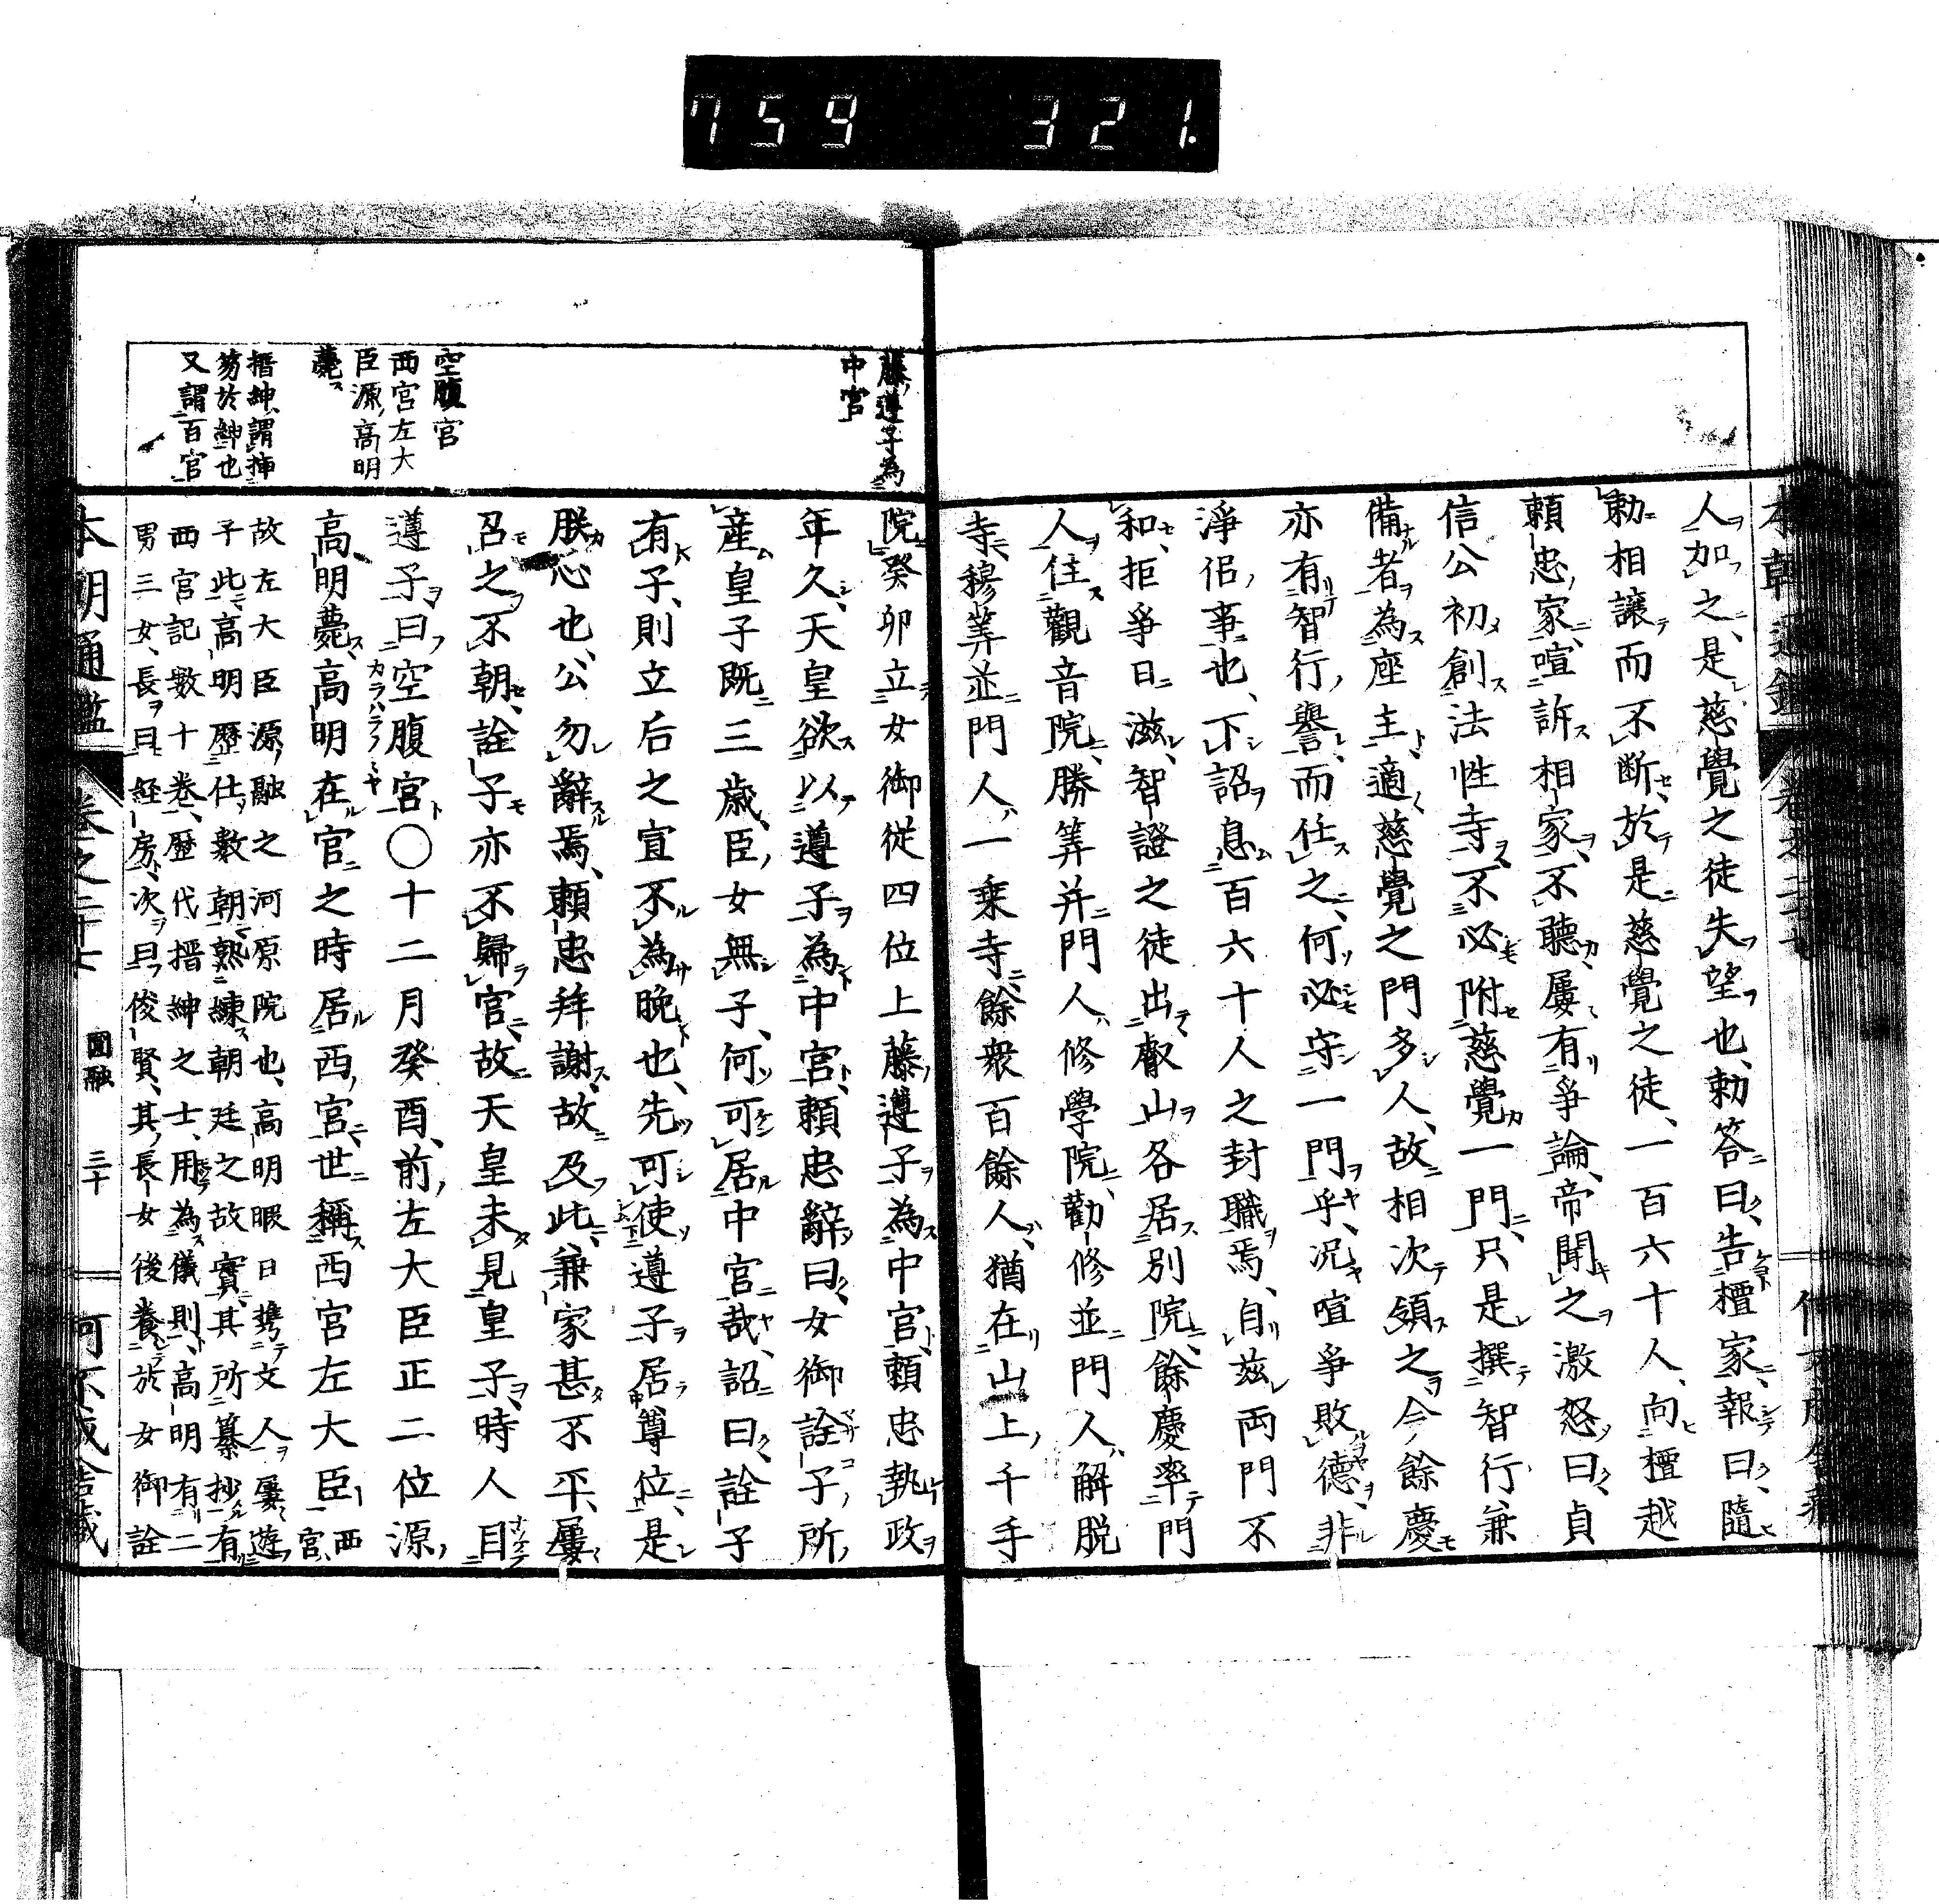 759 321.
本朝通鑑 卷之二十七
人加之是慈覺之徒失望也勅答曰告檀家報曰隨
勅相讓而不断於是慈覺之徒一百六十人向檀越
頼忠家喧訴相家不聽屢有爭論帝聞之激怒曰貞
信公初創法性寺不必附慈覺一門只是撰智行兼
備者為座主適慈覺之門多人故相次領之今餘慶
亦有智行譽而任之何必守一門乎况喧爭敗德非
淨侶事也下詔息百六十人之封職焉自茲両門不
和拒爭日滋智證之徒出叡山各居別院餘慶率門
人住觀音院勝筭并門人修學院勸修並門人解脱
寺穆筭並門人一乗寺餘衆百餘人猶在山上千手
藤遵子為
中宮
院癸卯立女御從四位上藤遵子為中宮頼忠執政
年久天皇欲以遵子為中宮頼忠辭曰女御詮子所
産皇子既三歳臣女無子何可居中宮哉詔曰詮子
有子則立后之宣不為晩也先可使遵子居尊位是
朕心也公勿辭焉頼忠拜謝故及此兼家甚不平屢
召之不朝詮子亦不歸宮故天皇未見皇子時人目
空腹宮
遵子曰空腹宮〇十二月癸酉前左大臣正二位源
西宮左大
臣源高明
薨
高明薨高明在官之時居西宮世稱西宮左大臣西
宮
故左大臣源融之河原院也高明暇日携文人屢遊
搢紳謂挿
笏於紳也
又謂百官
子此高明歴仕數朝熟練朝廷之故實其所纂抄有
西宮記數十卷歴代搢紳之士用為儀則高明有二
男三女長曰経房次曰俊賢其長女後養於女御詮
本朝通鑑 卷之二十七 圓融 三十